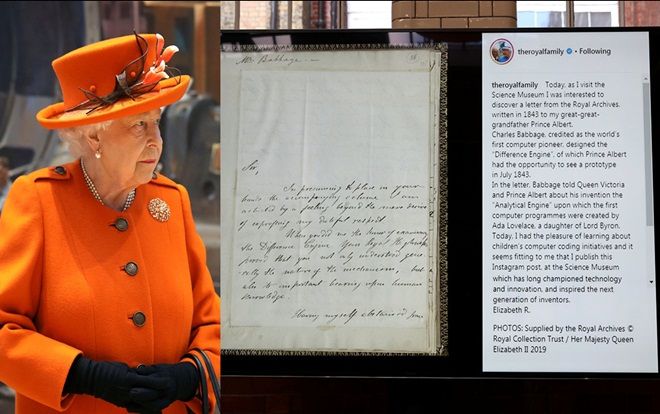 Mr. Babbage.
Sir,
In presuming to place in your
hands the accompanying volume I am
actuated by a feeling beyond the mere desire
of expressing my dutiful respect
When you did me the honor of examining
the Difference Engine Your Royal Highness
proved that you not only understood gene
rally the nature of the mechanism, but
also its important bearing upon human
knowledge.
Having myself abstained from
theroyalfamily • Following
theroyalfamily Today, as I visit the
Science Museum I was interested to
discover a letter from the Royal Archives,
written in 1843 to my great-great-
grandfather Prince Albert.
Charles Babbage, credited as the world's
first computer pioneer, designed the
"Difference Engine", of which Prince Albert
had the opportunity to see a prototype
in July 1843.
In the letter, Babbage told Queen Victoria
and Prince Albert about his invention the
"Analytical Engine" upon which the first
computer programmes were created by
Ada Lovelace, a daughter of Lord Byron.
Today, I had the pleasure of learning about
children's computer coding initiatives and it
seems fitting to me that I publish this
Instagram post, at the Science Museum
which has long championed technology
and innovation, and inspired the next
generation of inventors.
Elizabeth R.
PHOTOS: Supplied by the Royal Archives ©
Royal Collection Trust / Her Majesty Queen
Elizabeth II 2019